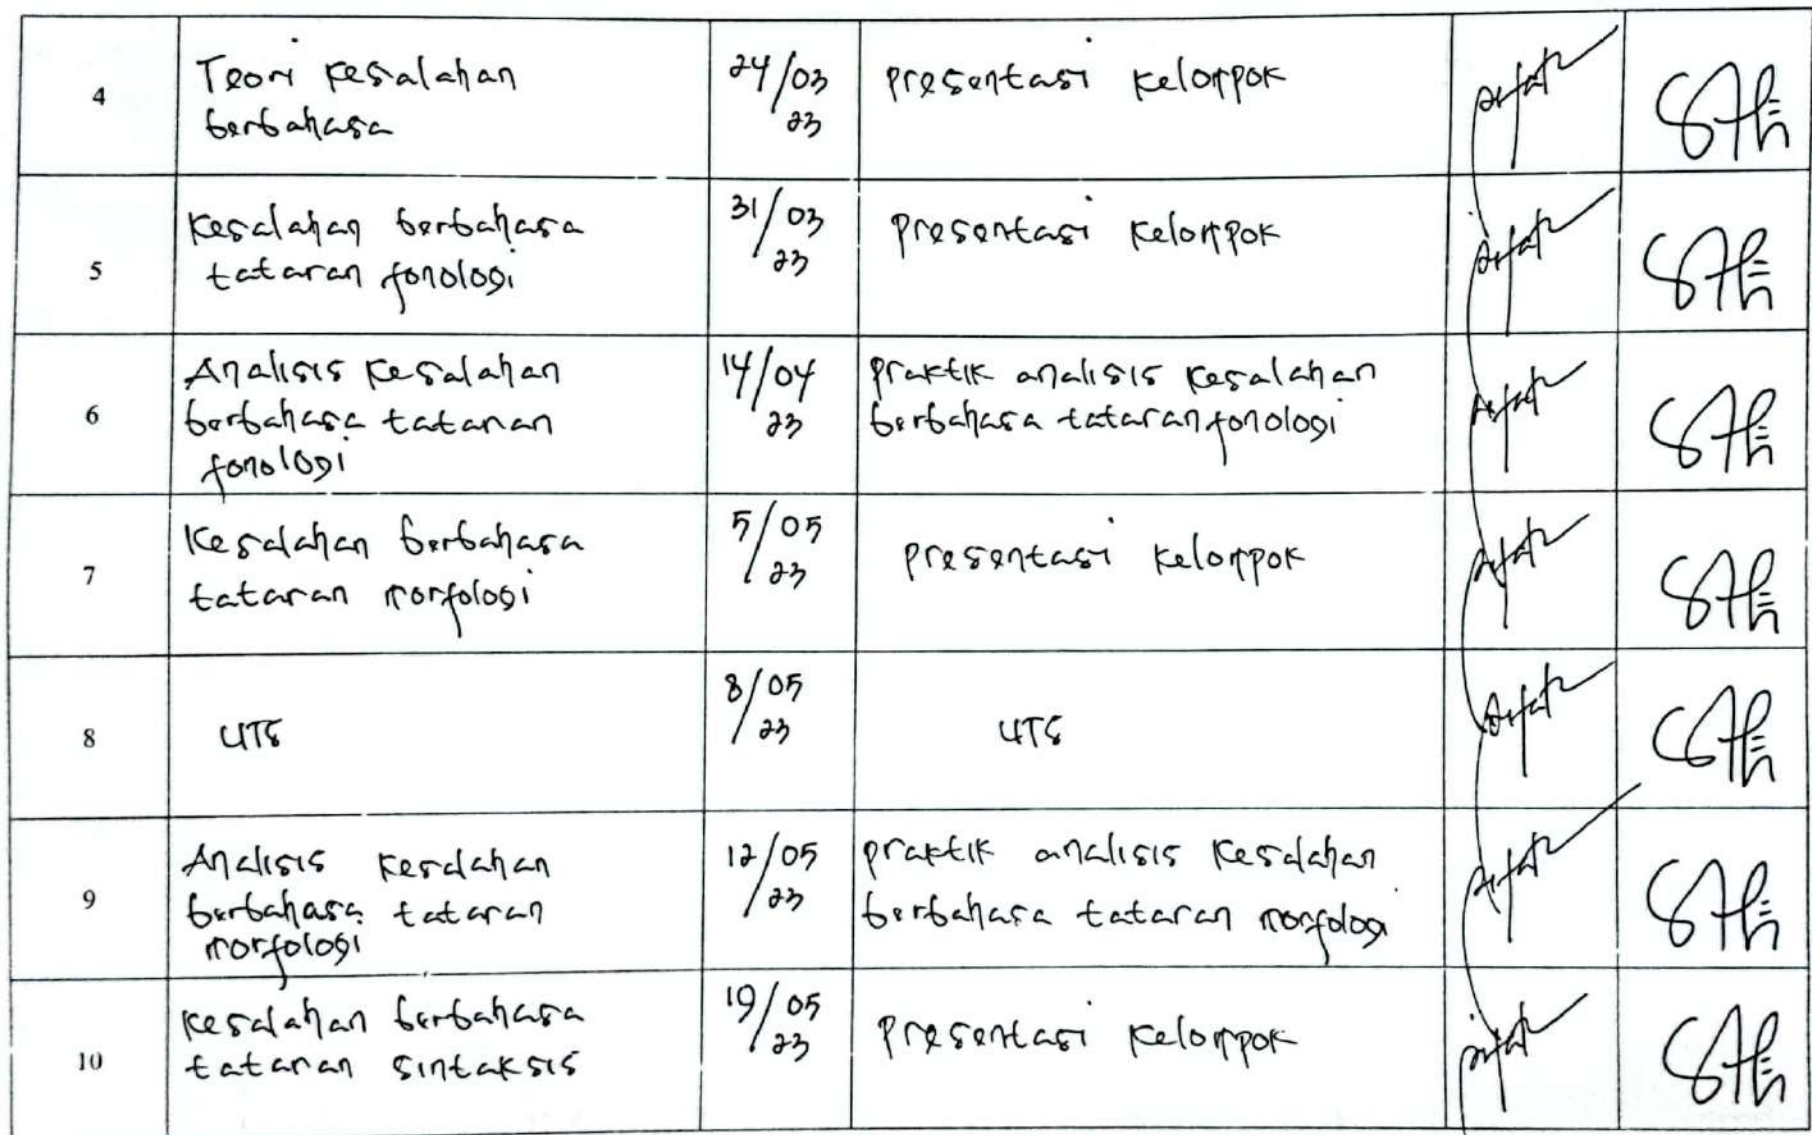 4
Teori kesalahan
berbahasa
24/03
23
presentasi kelompok
5
kesalahan berbahasa
tataran fonologi
31/03
23
presentasi kelompok
6
Analisis kesalahan
berbahasa tatanan
fonologi
14/04
23
praktik analisis kesalahan
berbahasa tataran fonologi
7
Kesalahan berbahasa
tataran morfologi
5/05
23
presentasi kelompok
8
UTS
8/05
23
UTS
9
Analisis kesalahan
berbahasa tataran
morfologi
12/05
23
praktik analisis kesalahan
berbahasa tataran morfologi
10
kesalahan berbahasa
tataran sintaksis
19/05
23
presentasi kelompok